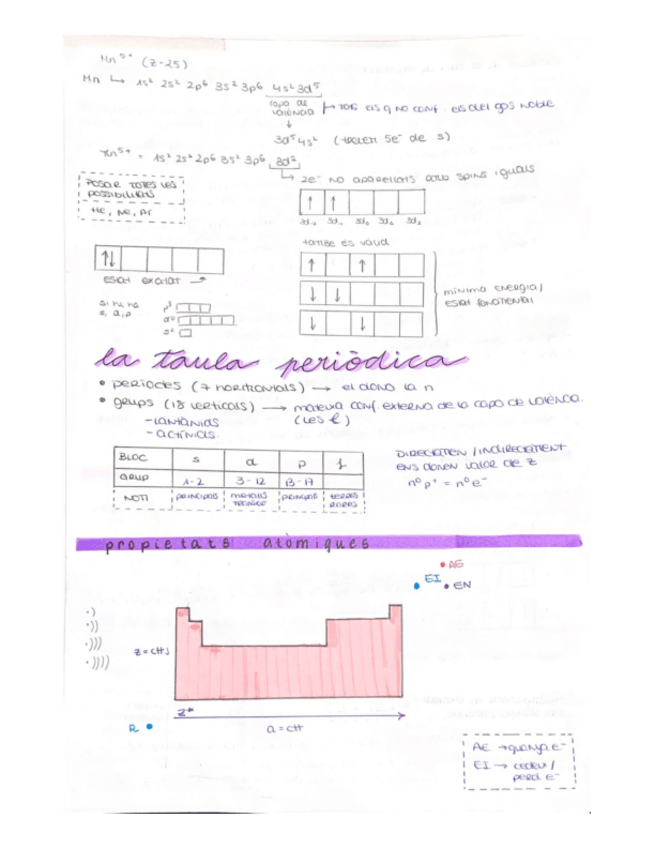 Mn⁵⁺ (Z=25)
Mn ↳ 1s² 2s² 2p⁶ 3s² 3p⁶ 4s² 3d⁵
capa de valència → tots els q no conf. els del gas noble
↓
3d⁵ 4s² (treiem 5e⁻ de s)
Mn⁵⁺ = 1s² 2s² 2p⁶ 3s² 3p⁶ 3d²
↳ 2e⁻ no aparellats amb spins iguals
POSAR TOTES LES
POSSIBILITATS
He, Ne, Ar
↑ ↑
també és vàlid
↑↓
estat excitat →
↑ ↑
↓ ↓
↓ ↓
mínima energia /
estat fonamental
si hi ha
s, d, p
p³
d⁵
s¹
la taula periòdica
• períodes (7 horitzontals) → el dona la n
• grups (18 verticals) → mateixa conf. externa de la capa de valència.
(les ℓ)
- lantànids
- actínids.
BLOC s d p f
GRUP 1-2 3-12 13-17
NOTI principals metalls principals terres
DIRECTAMENT / INDIRECTAMENT
ENS donen valor de Z
nº p⁺ = nº e⁻
propietats atòmiques
• AE
• EI • EN
•)
•))
•)))
•))))
Z = ctt ↓
Z*
R •
a = ctt
AE → guanya e⁻
EI → cedeix /
perd e⁻